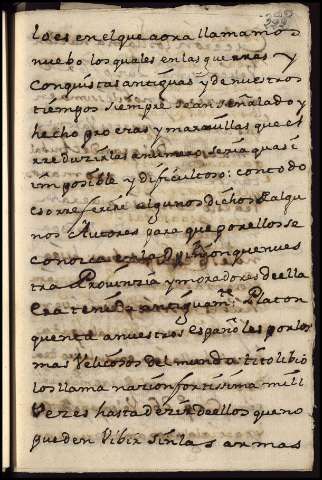 lo es en el que aora llamamos
nuebo los quales en las guerras y
conquistas antiguas y de nuestros
tiempos siempre sean señalado y
hecho proezas y marauillas que es
rreduzirlas a numero seria quasi
imposible y dificultoso: con todo
eso rreferire algunos dichos de algu
nos Autores para que por ellos se
conosca en la opinion que nues
tra Provinzia y moradores de ella
era tenida antiguamte. Platon
quenta a nuestros españoles por los
mas Velicosos del mundo tito libio
los llama nacion fortissima mill
Vezes hasta dezir de ellos que no
pueden Vibir sin las armas